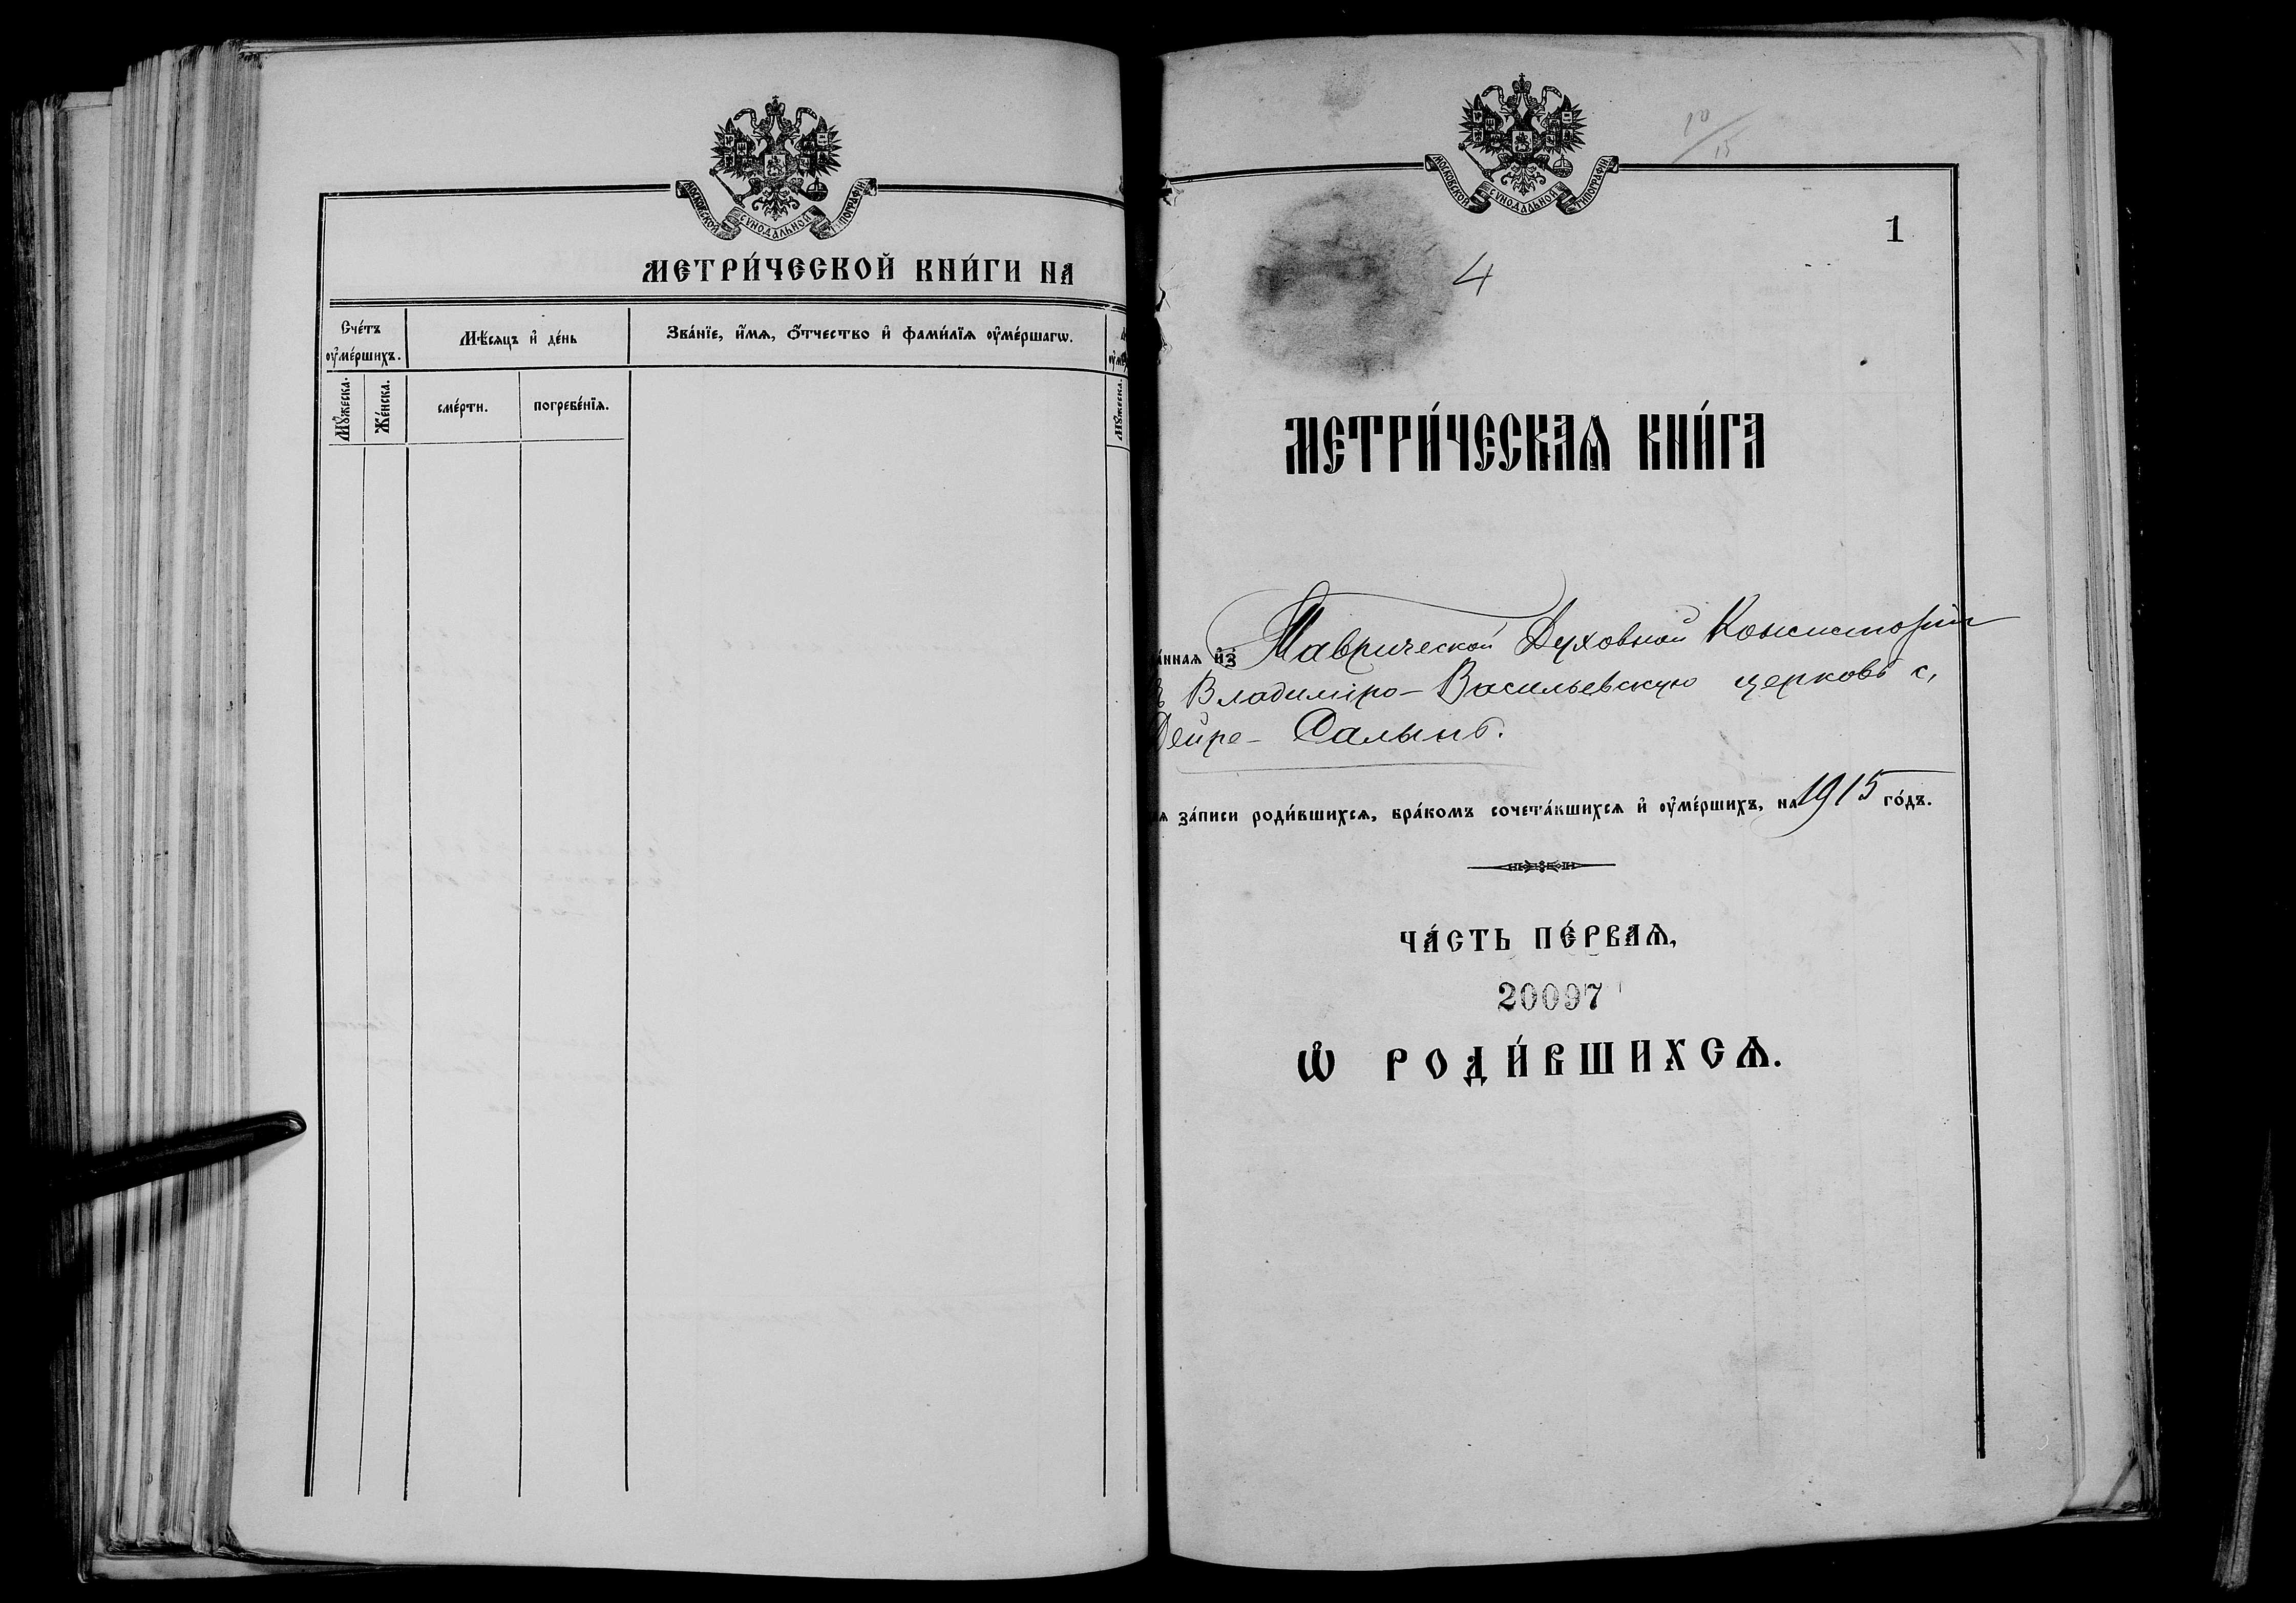 МОСКОВСКОЙ СѴНОДАЛЬНОЙ ТИПОГРАФІИ
МЕТРИ́ЧЕСКОЙ КНИ́ГИ НА
Сче́тъ оу҆ме́ршихъ.
Мѣ́сяцъ и҆ де́нь
Зва́нїе, и҆́мѧ, ѻ҆́тчество и҆ фами́лїѧ оу҆ме́ршагѡ.
Мꙋ́жеска.
Же́нска.
сме́рти.
погребе́нїѧ.
Мꙋ́жеска.
МОСКОВСКОЙ СѴНОДАЛЬНОЙ ТИПОГРАФІИ
10/15
1
4
МЕТРИ́ЧЕСКАѦ КНИ́ГА
а́ннаѧ и҆з̾ Таврической Духовной Консисторіи
ъ Владиміро-Васильевскую церковь с.
Дейре-Салынъ.
ѧ за́писи роди́вшихсѧ, бра́комъ сочета́вшихсѧ и҆ оу҆ме́ршихъ, на 1915 го́дъ.
ЧА́СТЬ ПЕ́РВАѦ,
20097
Ѡ҆ РОДИ́ВШИХСѦ.